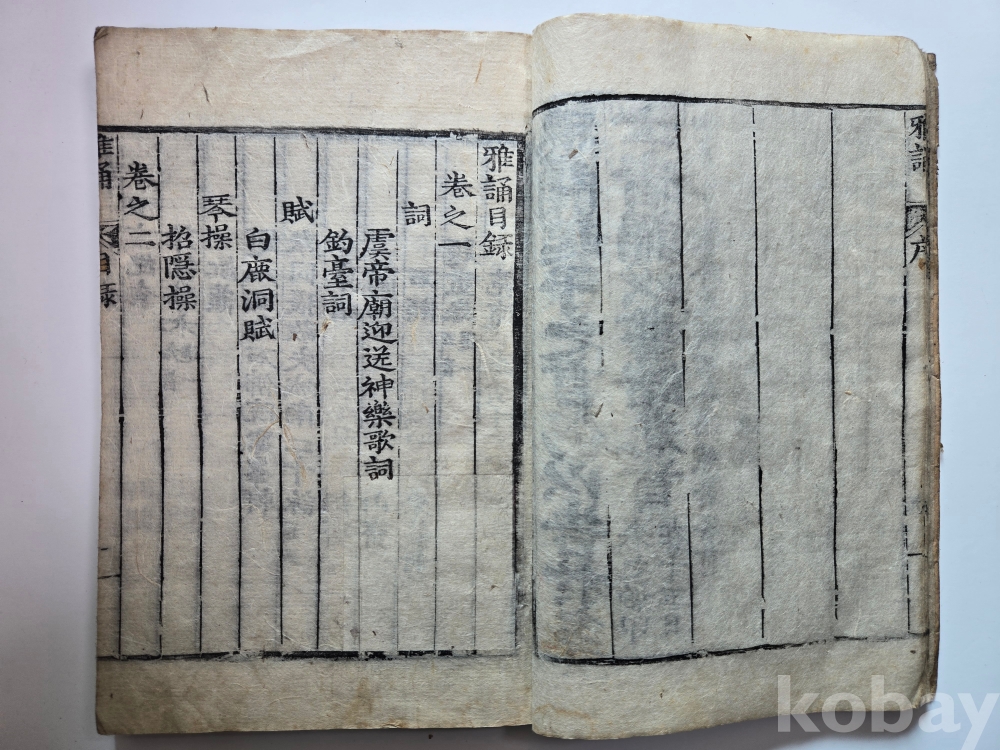 雅誦 序
雅誦目録
卷之一
詞
虞帝廟迎送神樂歌詞
釣臺詞
賦
白鹿洞賦
琴操
招隱操
卷之二
雅誦 目録 一
kobay